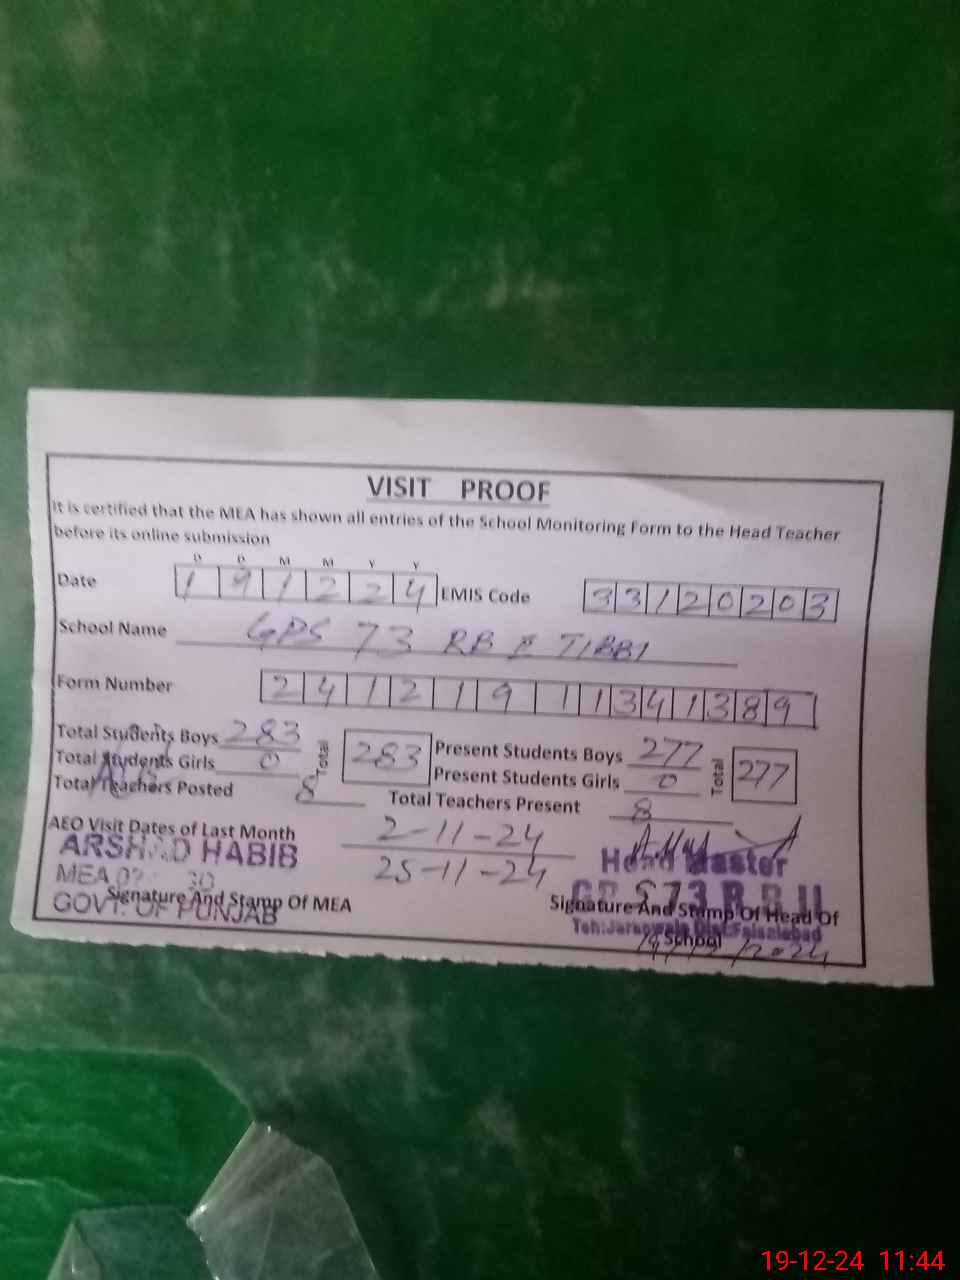 VISIT PROOF
It is certified that the MEA has shown all entries of the School Monitoring Form to the Head Teacher
before its online submission
D D M M Y Y
Date 1 9 1 2 2 4 EMIS Code 3 3 1 2 0 2 0 3
School Name GPS 73 RB II TIBBI
Form Number 2 4 1 2 1 9 1 1 3 4 1 3 8 9
Total Students Boys 283 Total 283 Present Students Boys 277 Total 277
Total Students Girls 0 Present Students Girls 0
Total Teachers Posted 8 Total Teachers Present 8
AEO Visit Dates of Last Month 2-11-24
25-11-24
ARSHAD HABIB
MEA
GOVT. OF PUNJAB
Signature And Stamp Of MEA
Head Master
S 73 R.B II
Signature And Stamp Of Head Of
Teh: Jaranwala Dist: Faisalabad
School
/2024
19-12-24 11:44